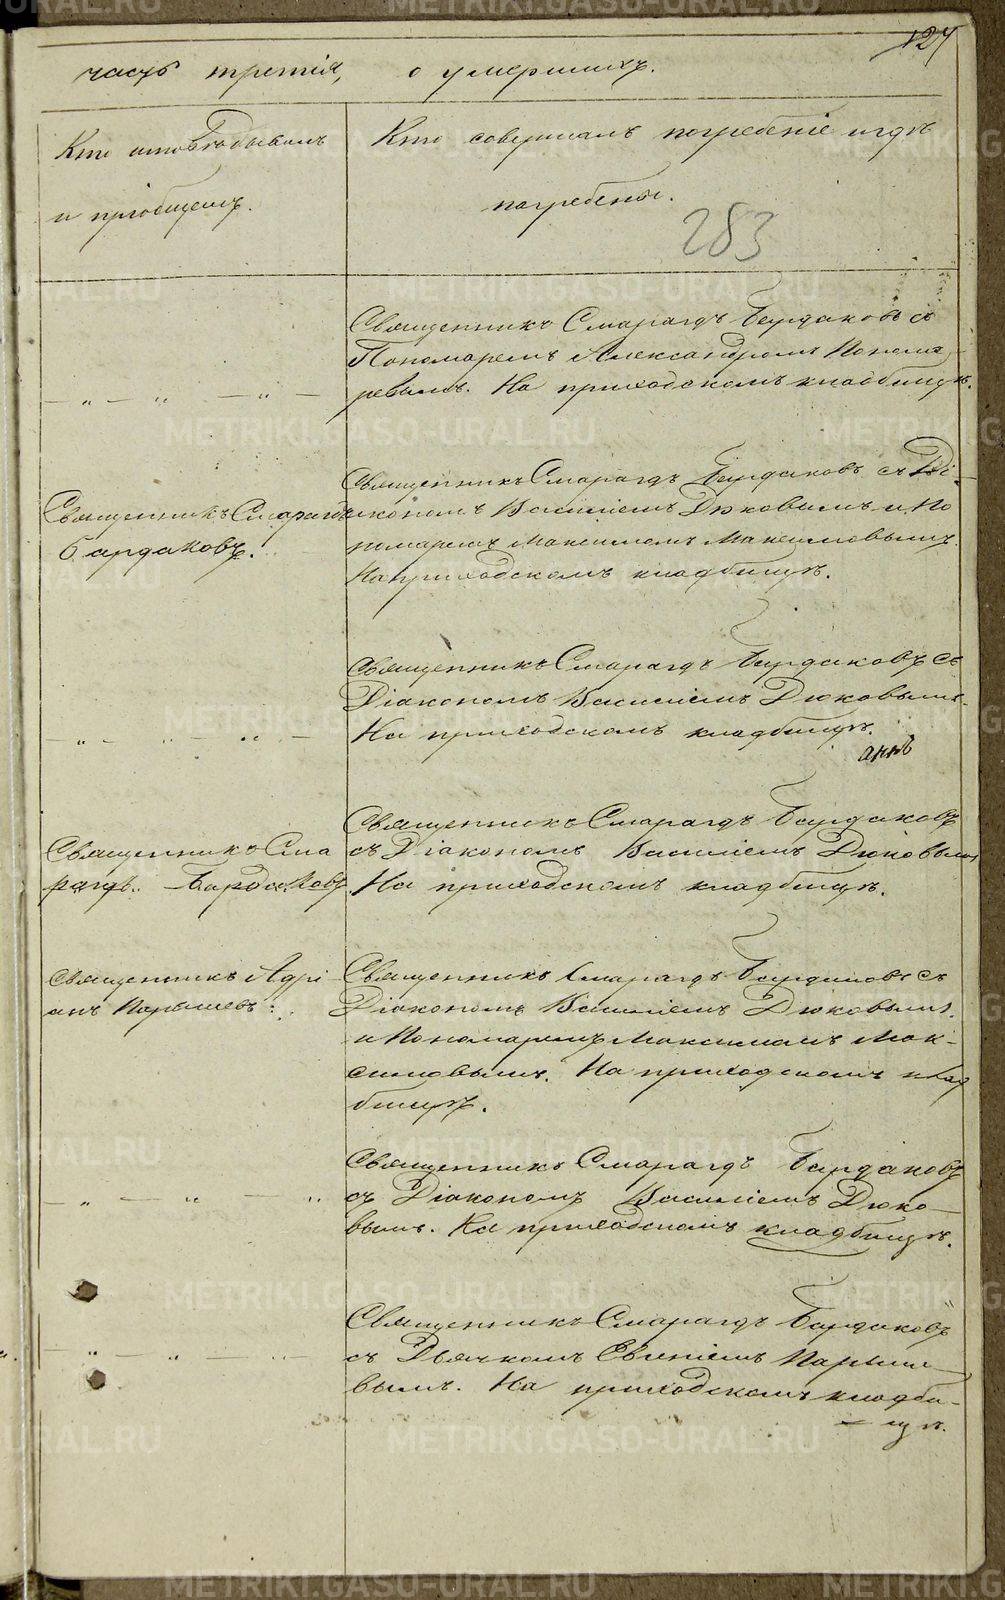 127
часть третія, о умершихъ.
Кто исповѣдывалъ
и пріобщалъ.
Кто совершалъ погребеніе и гдѣ
погребены.
283
Священникъ Смарагдъ Бардаковъ съ
Пономаремъ Александромъ Понома
ревымъ. На приходскомъ кладбищѣ.
— „ — „ — „ —
Священникъ Смарагдъ
Бардаковъ.
Священникъ Смарагдъ Бардаковъ съ Ді-
акономъ Василіемъ Дюковымъ и По
номаремъ Максимомъ Максимовымъ.
На приходскомъ кладбищѣ.
— „ — „ — „ —
Священникъ Смарагдъ Бардаковъ съ
Діакономъ Василіемъ Дюковымъ.
На приходскомъ кладбищѣ.
Священникъ Сма
рагдъ Бардаковъ.
Священникъ Смарагдъ Бардаковъ
съ Діакономъ Василіемъ Дюковымъ
На приходскомъ кладбищѣ.
Священникъ Адрі
анъ Парышевъ.
Священникъ Смарагдъ Бардаковъ съ
Діакономъ Василіемъ Дюковымъ
и Пономаремъ Максимомъ Мак-
симовымъ. На приходскомъ клад
бищѣ.
— „ — „ — „
Священникъ Смарагдъ Бардаковъ
съ Діакономъ Василіемъ Дюко-
вымъ. На приходскомъ кладбищѣ.
— „ — „ — „ —
Священникъ Смарагдъ Бардаковъ
съ Дьячкомъ Евгеніемъ Парыше-
вымъ. На приходскомъ кладби-
щѣ.
METRIKI.GASO-URAL.RU